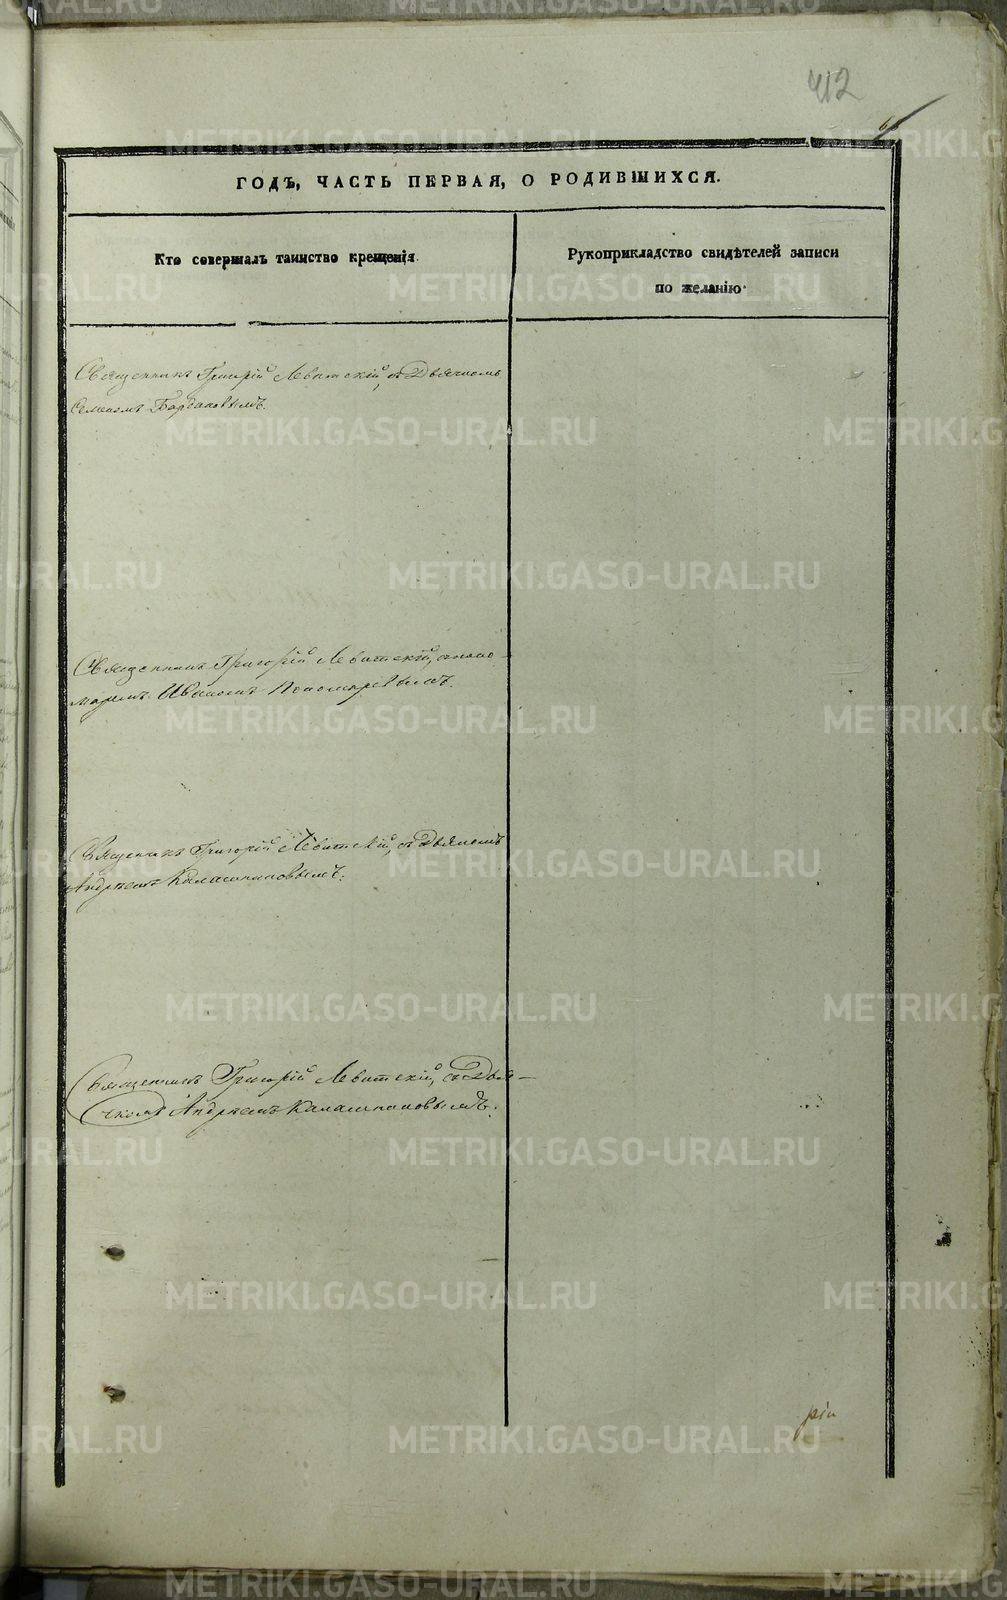 412
ГОДЪ, ЧАСТЬ ПЕРВАЯ, О РОДИВШИХСЯ.
Кто совершалъ таинство крещенія.
Рукоприкладство свидѣтелей записи
по желанію.
Священникъ Григорій Левитскій, съ Дьячкомъ
Семеномъ
Священникъ Григорій Левитскій, съ поно-
маремъ Иваномъ Пономаревымъ.
Священникъ Григорій Левитскій, съ
Андреемъ Калашниковымъ.
Священникъ Григорій Левитскій, съ Дья-
чкомъ Андреемъ Калашниковымъ.
METRIKI.GASO-URAL.RU